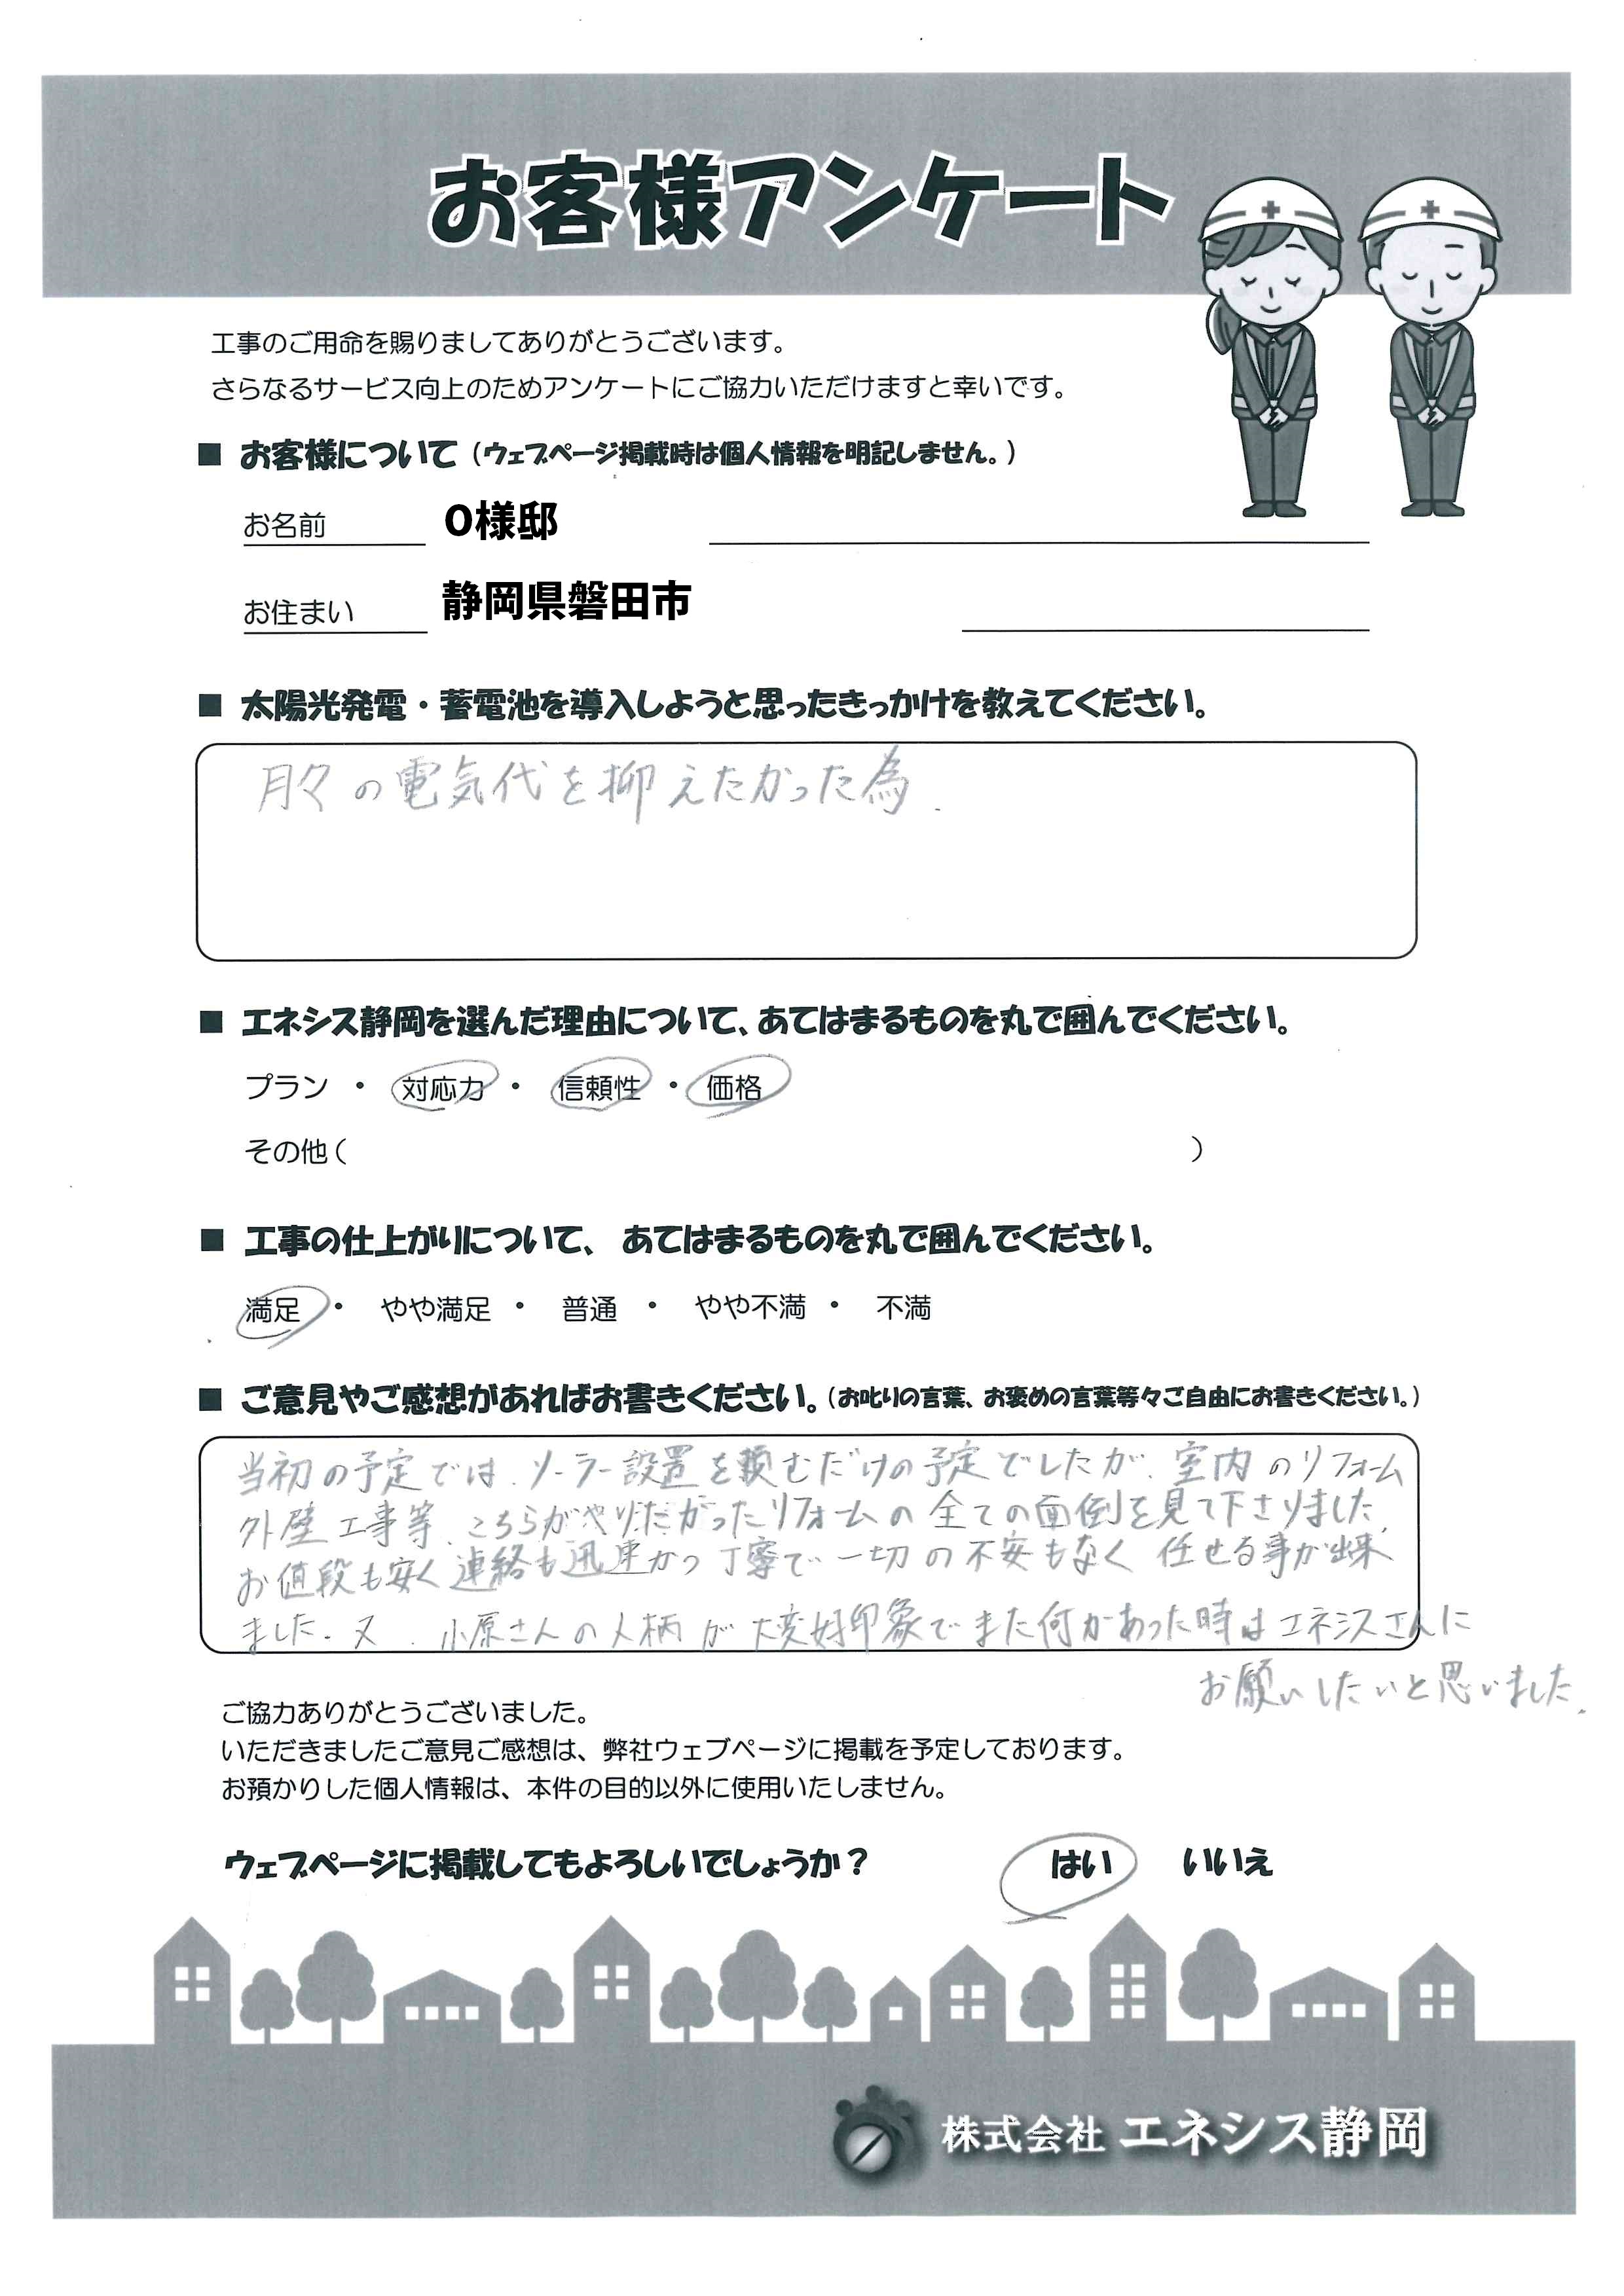 お客様アンケート
工事のご用命を賜りましてありがとうございます。
さらなるサービス向上のためアンケートにご協力いただけますと幸いです。
■ お客様について（ウェブページ掲載時は個人情報を明記しません。）
お名前 O様邸
お住まい 静岡県磐田市
■ 太陽光発電・蓄電池を導入しようと思ったきっかけを教えてください。
月々の電気代を抑えたかった為.
■ エネシス静岡を選んだ理由について、あてはまるものを丸で囲んでください。
プラン ・ 対応力 ・ 信頼性 ・ 価格
その他（ ）
■ 工事の仕上がりについて、あてはまるものを丸で囲んでください。
満足 ・ やや満足 ・ 普通 ・ やや不満 ・ 不満
■ ご意見やご感想があればお書きください。（お叱りの言葉、お褒めの言葉等々ご自由にお書きください。）
当初の予定では、ソーラー設置を頼むだけの予定でしたが、室内のリフォーム
外壁工事等、こちらがやりたがったリフォームの全ての面倒を見て下さりました。
お値段も安く連絡も迅速かつ丁寧で一切の不安もなく任せる事が出来
ました. 又、小原さんの人柄が大変好印象でまた何かあった時はエネシスさんに
お願いしたいと思いました。
ご協力ありがとうございました。
いただきましたご意見ご感想は、弊社ウェブページに掲載を予定しております。
お預かりした個人情報は、本件の目的以外に使用いたしません。
ウェブページに掲載してもよろしいでしょうか？ はい いいえ
株式会社 エネシス静岡